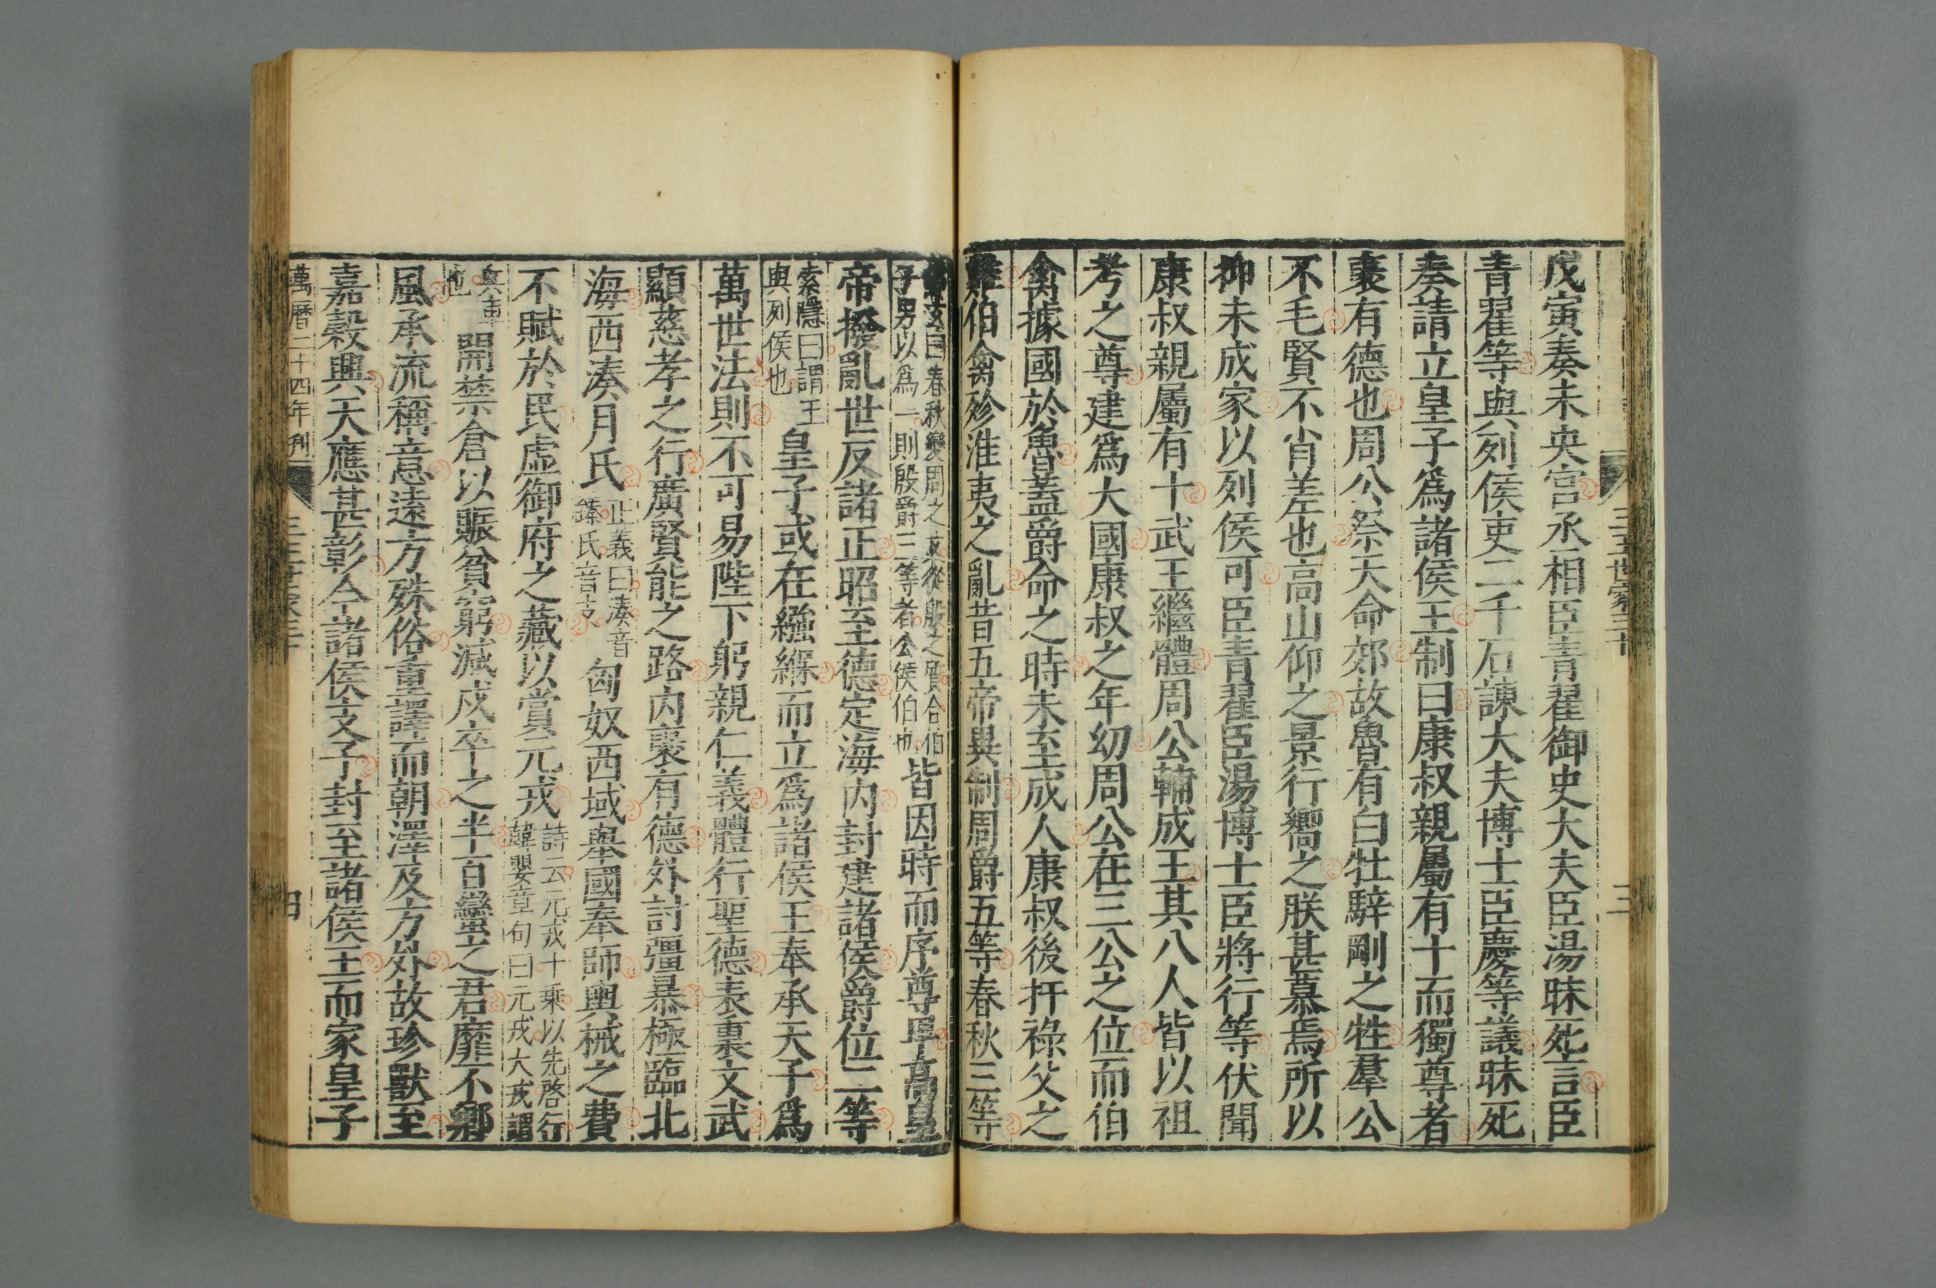 戊寅奏未央宫丞相臣青翟御史大夫臣湯昧死言臣
青翟等與列侯吏二千石諫大夫博士臣慶等議昧死
奏請立皇子爲諸侯王制曰康叔親屬有十而獨尊者
襃有德也周公祭天命郊故魯有白牡騂剛之牲羣公
不毛賢不肖差也高山仰之景行嚮之朕甚慕焉所以
抑未成家以列侯可臣青翟臣湯博士臣將行等伏聞
康叔親屬有十武王繼體周公輔成王其八人皆以祖
考之尊建爲大國康叔之年幼周公在三公之位而伯
禽據國於魯蓋爵命之時未至成人康叔後扞祿父之
難伯禽殄淮夷之亂昔五帝異制周爵五等春秋三等
三王世家三十
三
曰春秋變周之文從殷之質合伯
子男以爲一則殷爵三等者公侯伯也
皆因時而序尊卑高皇
帝撥亂世反諸正昭至德定海内封建諸侯爵位二等
索隱曰謂王
與列侯也
皇子或在繈緥而立爲諸侯王奉承天子爲
萬世法則不可易陛下躬親仁義體行聖德表裏文武
顯慈孝之行廣賢能之路内襃有德外討彊暴極臨北
海西湊月氏
正義曰湊音
臻氏音支
匈奴西域舉國奉師輿械之費
不賦於民虚御府之藏以賞元戎
詩云元戎十乘以先啓行
韓嬰章句曰元戎大戎謂
兵車
也
開禁倉以賑貧窮減戍卒之半百蠻之君靡不鄉
風承流稱意遠方殊俗重譯而朝澤及方外故珍獸至
嘉穀興天應甚彰今諸侯支子封至諸侯王而家皇子
萬曆二十四年刊
三王世家三十
四